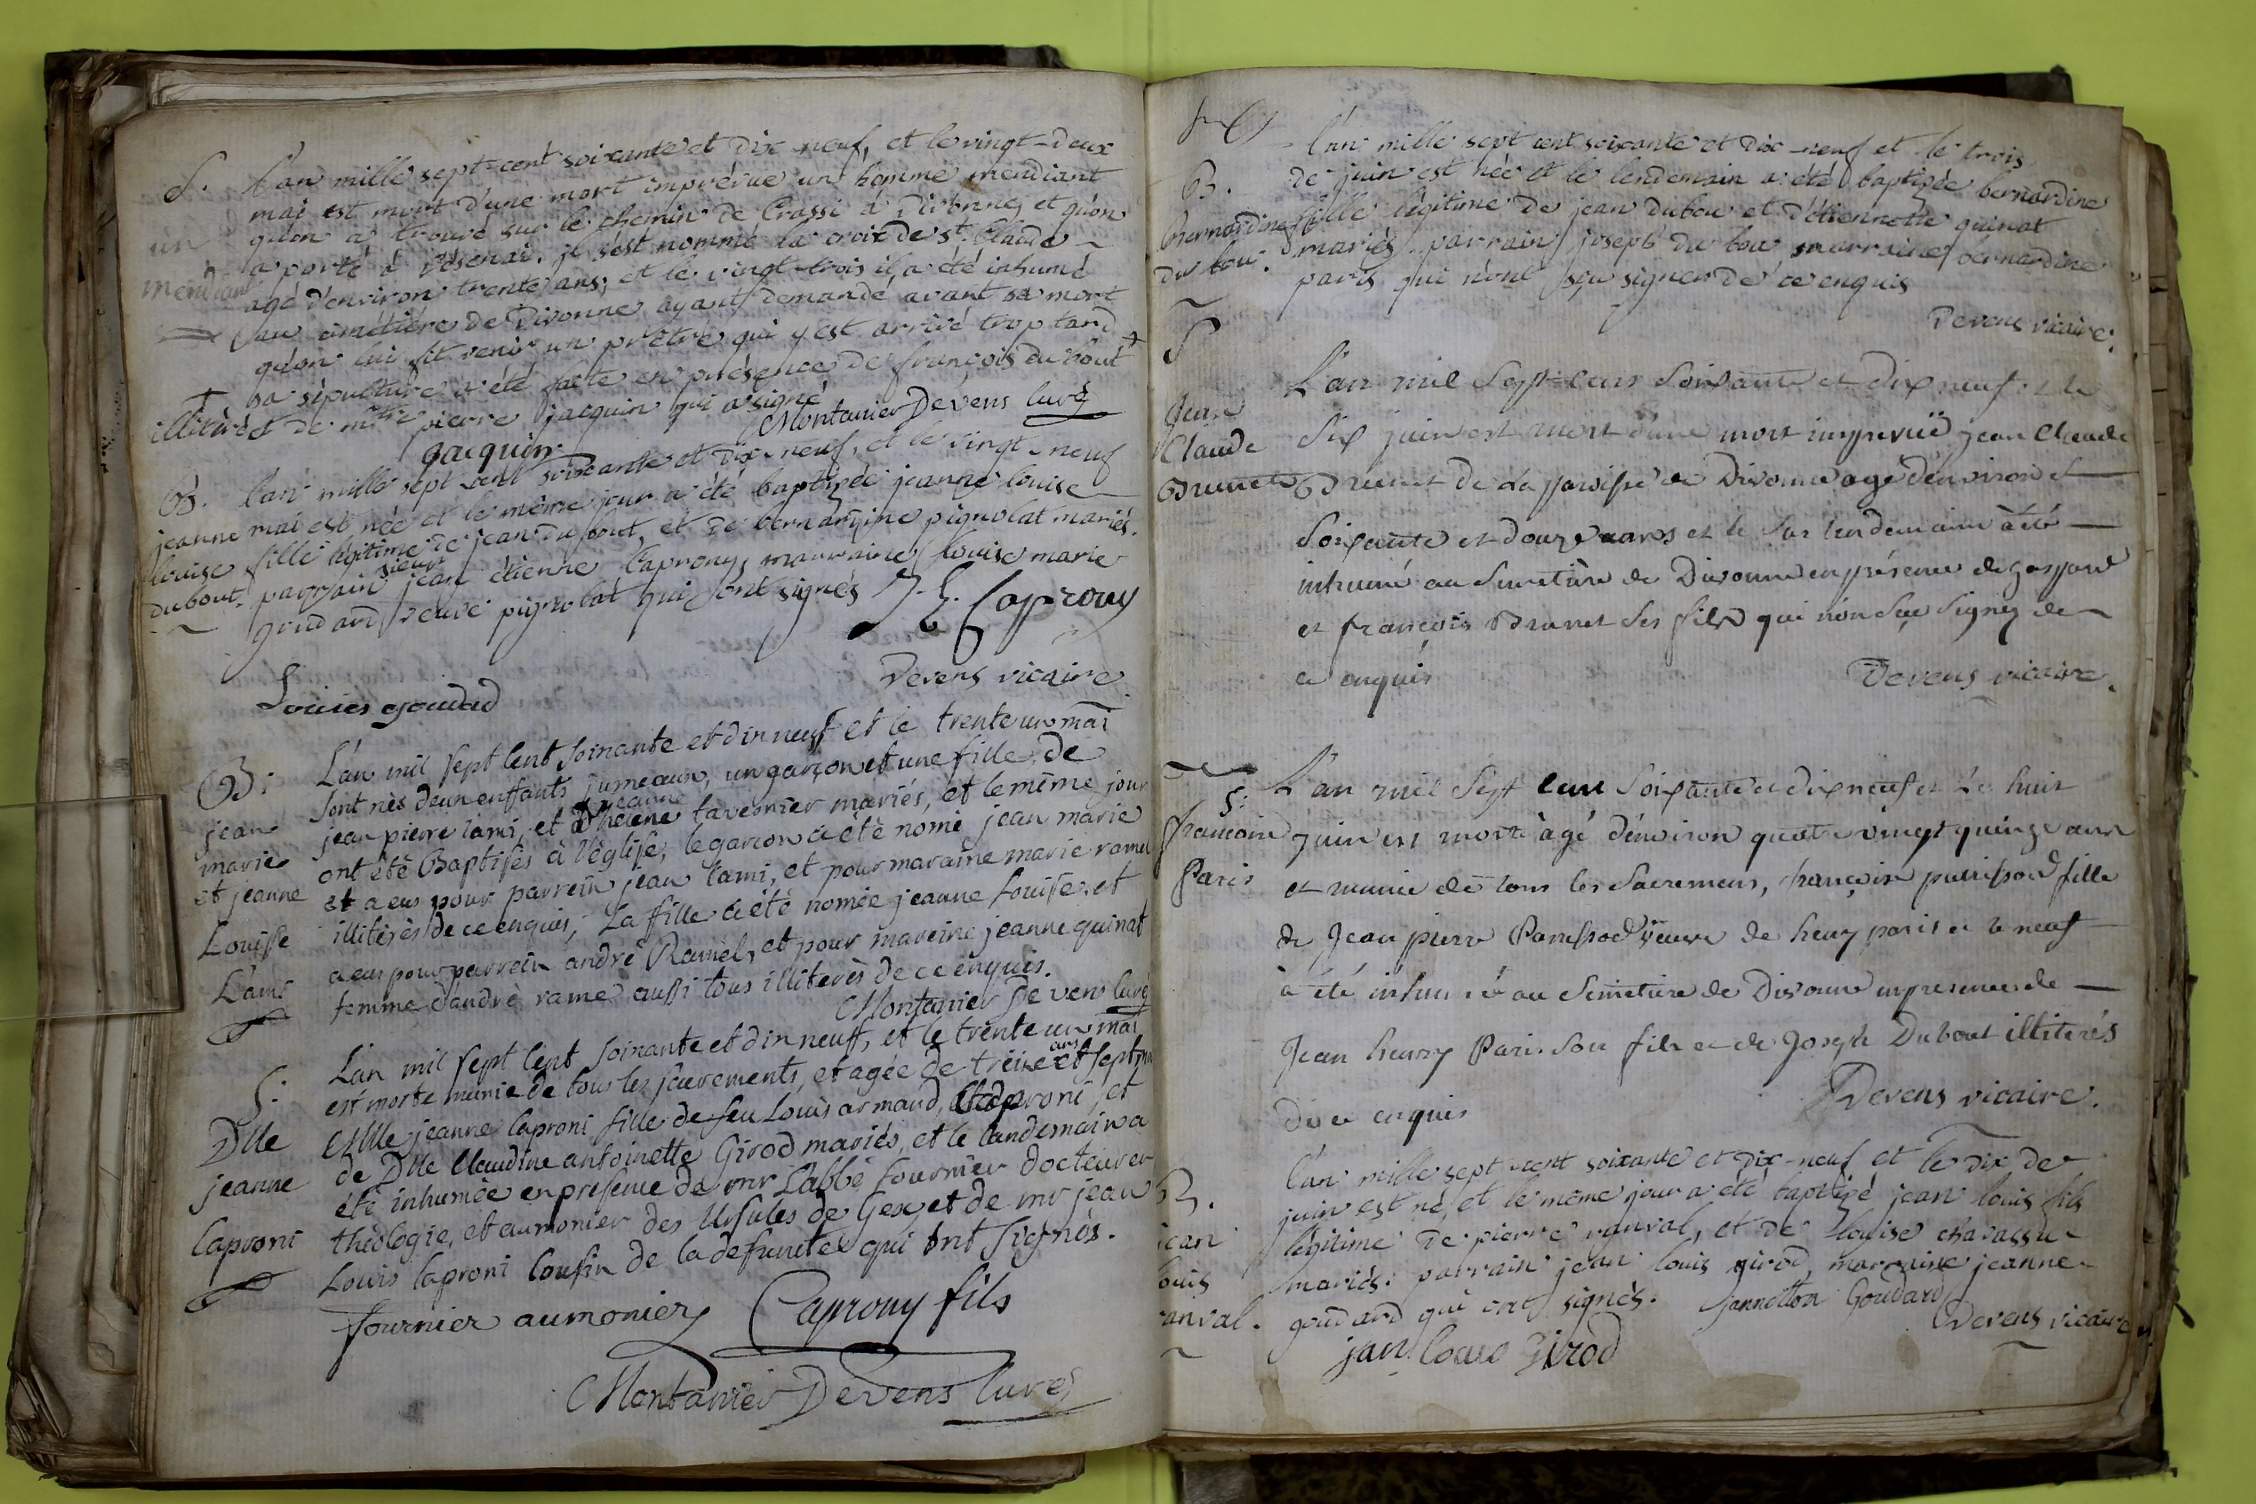 S. L'an mille sept-cent soixante et dix-neuf, et le vingt-deux
mai est mort d'une mort imprévue un homme mendiant
qu'on a trouvé sur le chemin de Crassi à Divonne, et qu'on
un a porté à Vésenai. il s'est nommé la croix de St. Claude
mendiant agé d'environ trente ans; et le vingt-trois il a été inhumé
au cimétière de Divonne ayant demandé avant sa mort
qu'on lui fit venir un prêtre qui y est arrivé trop tard
sa sépulture a été faite en présence de françois du bout +
+ illitéré et de mtre pierre jacquin qui a signé
Montanier Devens Curé
jacquin
B. l'an mille sept cent soixante et dix-neuf, et le vingt-neuf
jeanne mai est née et le même jour a été baptizée jeanne louise
louise fille légitime de jean du bout, et de bernardine pignolat mariés.
dubout. parrain sieur jean étienne Caprony, marraine louise marie
goudard veuve pignolat qui sont signés J. E. Caprony
Devens vicaire
Louies goudad
B. L'an mil sept Cent soixante et dix neuff et le trente un mai
sont nés deux enffants jumeaux, un garçon et une fille, de
jean jean pierre Lami, et d'heleine jeanne tavernier mariés, et le même jour
marie ont été Baptisés à l'église, le garçon a été nomé jean marie
et jeanne et a eus pour parrein jean Lami, et pour maraine marie ramel
Louisse illiterés de ce enquis, La fille a été nomée jeanne Louisse, et
Lami a eus pour parrein andré Ramel, et pour mareine jeanne quinat
femme d'andré ramel aussi tous illiterés de ce enquis.
Montanier Devens Curé
S. L'an mil sept Cent soixante et dix neuff, et le trente un mai
est morte munie de tous les sacrements, et agée de treize ans et sept
Dlle Dlle jeanne Caproni fille de feu Louis armand Caproni, et
de Dlle Claudine antoinette Girod mariés, et le landemain a
jeanne été inhumée en presence de mr L'abbé fournier docteur en
Caproni théologie, et aumonier des Ursules de Gex, et de mr jean
Louis Caproni Cousin de la defunte qui ont signés.
fournier aumonier Caprony fils
Montanier Devens Curé
l'an mille sept cent soixante et dix-neuf et le trois
B. de juin est née et le lendemain a été baptizée bernardine
bernardine fille légitime de jean dubou et d'étiennette quinat
du bou. mariés. parrain joseph du bou, marraine bernardine
paris qui n'ont sçu signer de ce enquis
Devens vicaire.
S
L'an mil Sept-Cent Soixante et dix neuf et le
Jean Six juin est mort d'une mort imprevuë jean Claude
Claude Brunet de La paroisse de Divonne agé d'environ
Brunet Soixante et douze ans et le Sur lendemain à été
inhumé au Simetière de Divonne en présence de gaspard
et françois Brunet Ses fils qui n'on Sçu Signez de
ce enquis Devens vicaire.
S. L'an mil Sept Cent Soixante et dix neuf et Le huit
francoise Juin est morte agé d'environ quatre vingt quinze ans
Paris et munie de tous les Sacremens, françoise fille
de Jean pierre veuve de henry paris et le neuf
à été inhumé au Simetiere de Divonne en presence de
Jean henry Paris Son fils et de Joseph Dubout illiterés
de ce enquis Devens vicaire.
B. l'an mille sept cent soixante et dix-neuf et le dix de
juin est né, et le même jour a été baptizé jean louis fils
jean légitime de pierre ranval, et de louise chavassu
louis mariés. parrain jean louis girod, marraine jeanne
ranval. goudard qui ont signés. jannetton Goudard
Devens vicaire
jan louis Girod